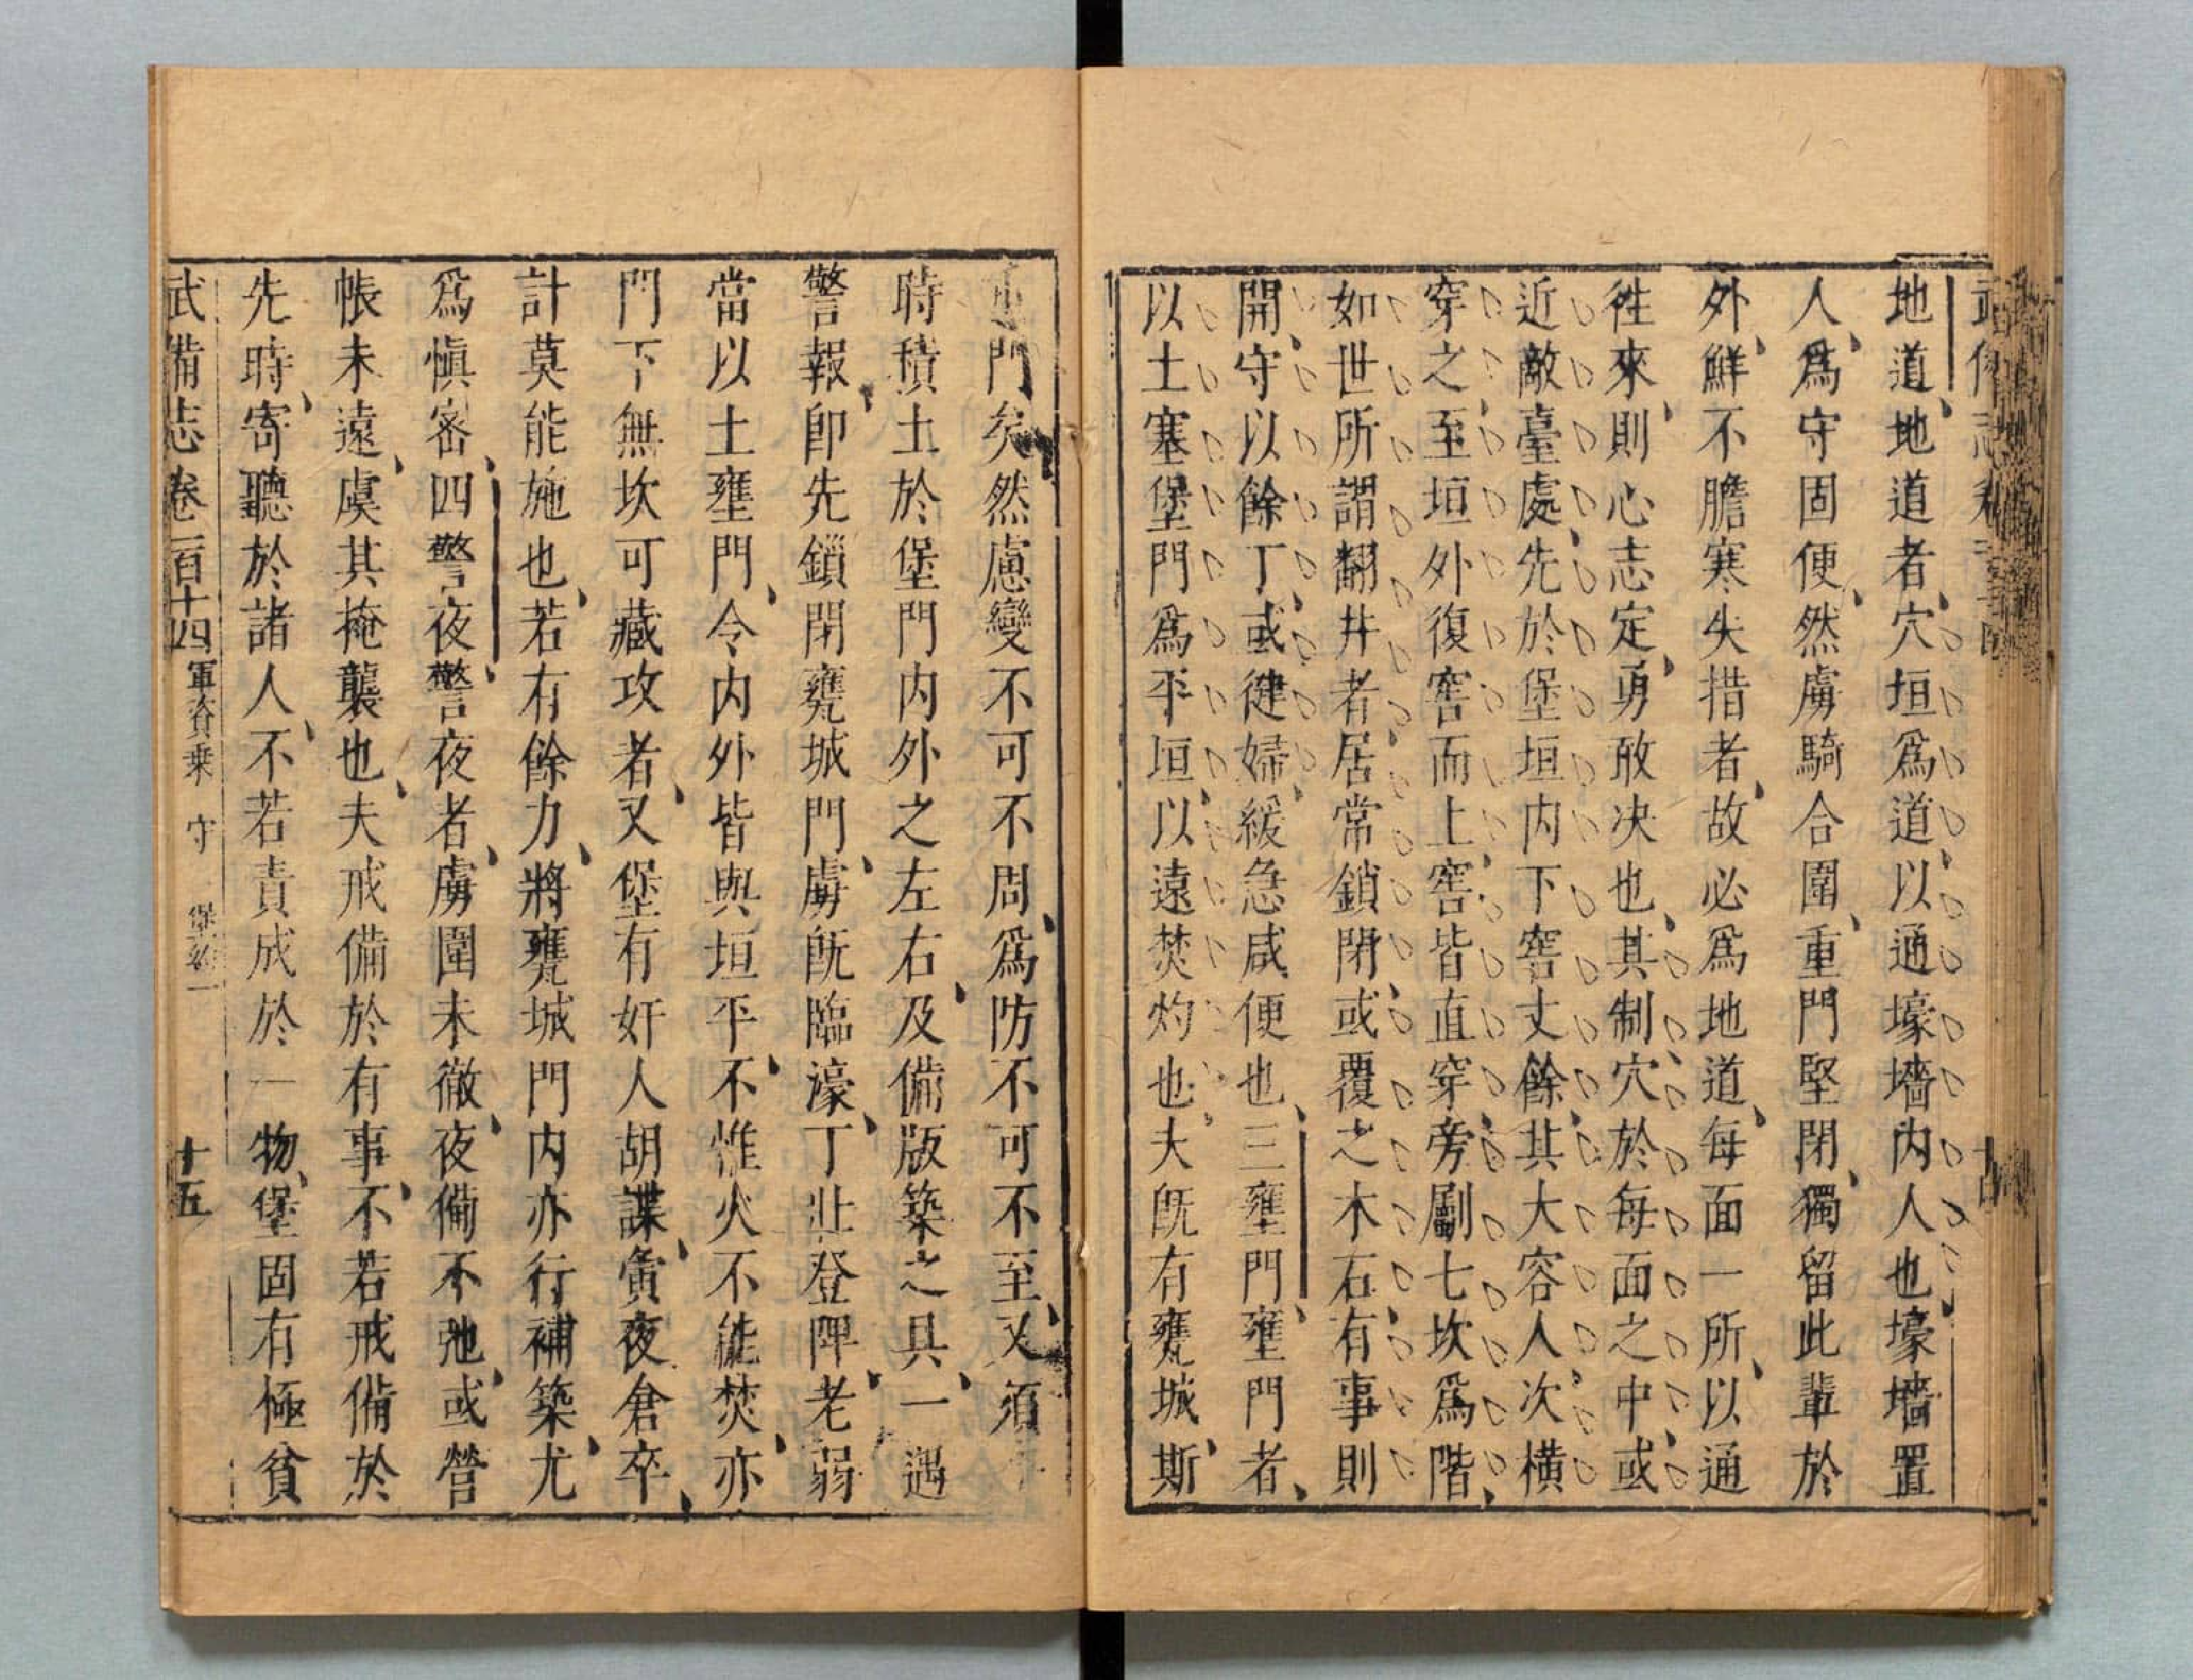 地道地道者穴垣爲道以通壕墻内人也壕墻置
人爲守固便然虜騎合圍重門堅閉獨留此輩於
外鮮不膽寒失措者故必爲地道每面一所以通
徃來則心志定勇敢决也其制穴於每面之中或
近敵臺處先於堡垣内下窖丈餘其大容人次横
穿之至垣外復窖而上窖皆直穿旁劚七坎爲階
如世所謂翻井者居常鎖閉或覆之木石有事則
開守以餘丁或健婦緩急咸便也三壅門壅門者
以土塞堡門爲平垣以遠焚灼也夫既有甕城斯
門矣然慮變不可不周爲防不可不至又須
時積土於堡門内外之左右及備版築之具一遇
警報即先鎖閉甕城門虜既臨濠丁壯登陴老弱
當以土壅門令内外皆與垣平不惟火不能焚亦
門下無坎可藏攻者又堡有奸人胡諜寅夜倉卒
計莫能施也若有餘力將甕城門内亦行補築尤
爲愼密四警夜警夜者虜圍未徹夜備不弛或營
帳未遠虞其掩襲也夫戒備於有事不若戒備於
先時寄聽於諸人不若責成於一物堡固有極貧
武備志卷一百十四 軍資乗 守 堡約一 十五